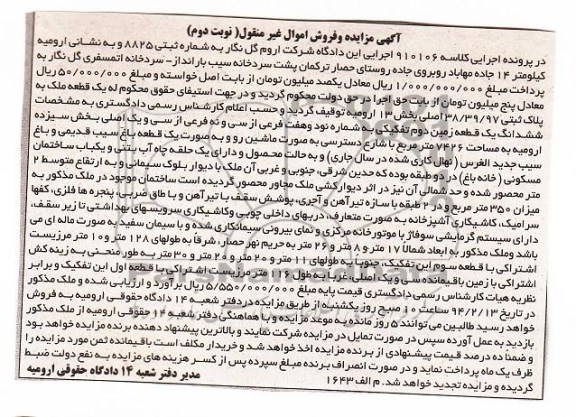 آگهی مزایده وفروش اموال غیر منقول( نوبت دوم)
در پرونده اجرایی کلاسه ۹۱۰۱۰۶ اجرایی این دادگاه شرکت اروم گل نگار به شماره ثبتی ۸۸۲۵ و به نشانی ارومیه
کیلومتر ۱۴ جاده مهاباد روبروی جاده روستای حصار ترکمان پشت سردخانه سیب بارانداز- سردخانه اتمسفری گل نگار به
پرداخت مبلغ ۱/۰۰۰/۰۰۰/۰۰۰ ریال معادل یکصد میلیون تومان از بابت اصل خواسته و مبلغ ۵۰/۰۰۰/۰۰۰ ریال
معادل پنج میلیون تومان از بابت حق اجرا در حق دولت محکوم گردید و در جهت استیفای حقوق محکوم له یک قطعه ملک به
پلاک ثبتی ۳۸/۳۹/۹۷ اصلی بخش ۱۳ ارومیه توقیف گردید و حسب اعلام کارشناس رسمی دادگستری به مشخصات
ششدانگ یک قطعه زمین دوم تفکیکی به شماره نود وهفت فرعی از سی و نه فرعی از سی و یک اصلی بخش سیزده
ارومیه به مساحت ۷۴۲۶ متر مربع با شارع دسترسی به صورت ماشین رو و به صورت یک قطعه باغ سیب قدیمی و باغ
سیب جدید الغرس (نهال کاری شده در سال جاری) و به حالت محصول و دارای یک حلقه چاه آب بتنی و یکباب ساختمان
مسکونی (خانه باغ) در دو طبقه بوده که حدین شرقی، جنوبی و غربی آن ملک با دیوار بلوک سیمانی و به ارتفاع متوسط ۲
متر محصور شده و حد شمالی آن نیز در اثر دیوارکشی ملک مجاور محصور گردیده است ساختمان موجود در ملک مذکور به
میزان ۳۵۰ متر مربع و در ۲ طبقه با سازه تیرآهن و آجری، پوشش سقف با تیرآهن و با طاق ضربی، پنجره ها فلزی، کفها
سرامیک، کاشیکاری آشپزخانه به صورت متعارف، دربهای داخلی چوبی وکاشیکاری سرویسهای بهداشتی تا زیر سقف،
دارای سیستم گرمایشی سوفاژ با موتورخانه مرکزی و نمای بیرونی سیمانکاری شده و با سیمان سفید به صورت ماله ای می
باشد وملک مذکور به ابعاد شمالاً ۱۷ متر و ۸ متر و ۲۶ متر به حریم نهر حصار، شرقا به طولهای ۱۲۸ متر و ۱۰ متر مرزیست
اشتراکی با قطعه سوم این تفکیک، جنوبا به طولهای ۱۱ متر و ۲۰ متر و ۲۰ متر و ۳۰ متر به طور منحنی به زینه کش
اشتراکی با زمین باقیمانده سی و یک اصلی، غربا به طول ۱۲۰ متر مرزیست اشتراکی با قطعه اول این تفکیک و برابر
نظریه هیات کارشناس رسمی دادگستری قیمت پایه مبلغ ۵/۵۵۰/۰۰۰/۰۰۰ ریال برآورد و ارزیابی شده و ملک مذکور
در تاریخ ۹۴/۲/۱۳ ساعت ۱۰ صبح روز یکشنبه از طریق مزایده دردفتر شعبه ۱۴ دادگاه حقوقی ارومیه به فروش
خواهد رسید طالبین می توانند ۵ روز مانده به موعد مزایده و با هماهنگی دفتر شعبه ۱۴ حقوقی ارومیه از ملک مذکور
بازدید به عمل آورده سپس در صورت تمایل در مزایده شرکت نمایند و بالاترین پیشنهاد دهنده برنده مزایده خواهد بود
و ضمناً ده در صد قیمت پیشنهادی از برنده مزایده اخذ خواهد شد و خریدار مکلف است باقیمانده ثمن مورد مزایده را
ظرف یک ماه پرداخت نماید و در صورت انصراف برنده مبلغ سپرده پس از کسر هزینه های مزایده به نفع دولت ضبط
گردیده و مزایده تجدید خواهد شد. م الف ۱۶۴۳
مدیر دفتر شعبه ۱۴ دادگاه حقوقی ارومیه